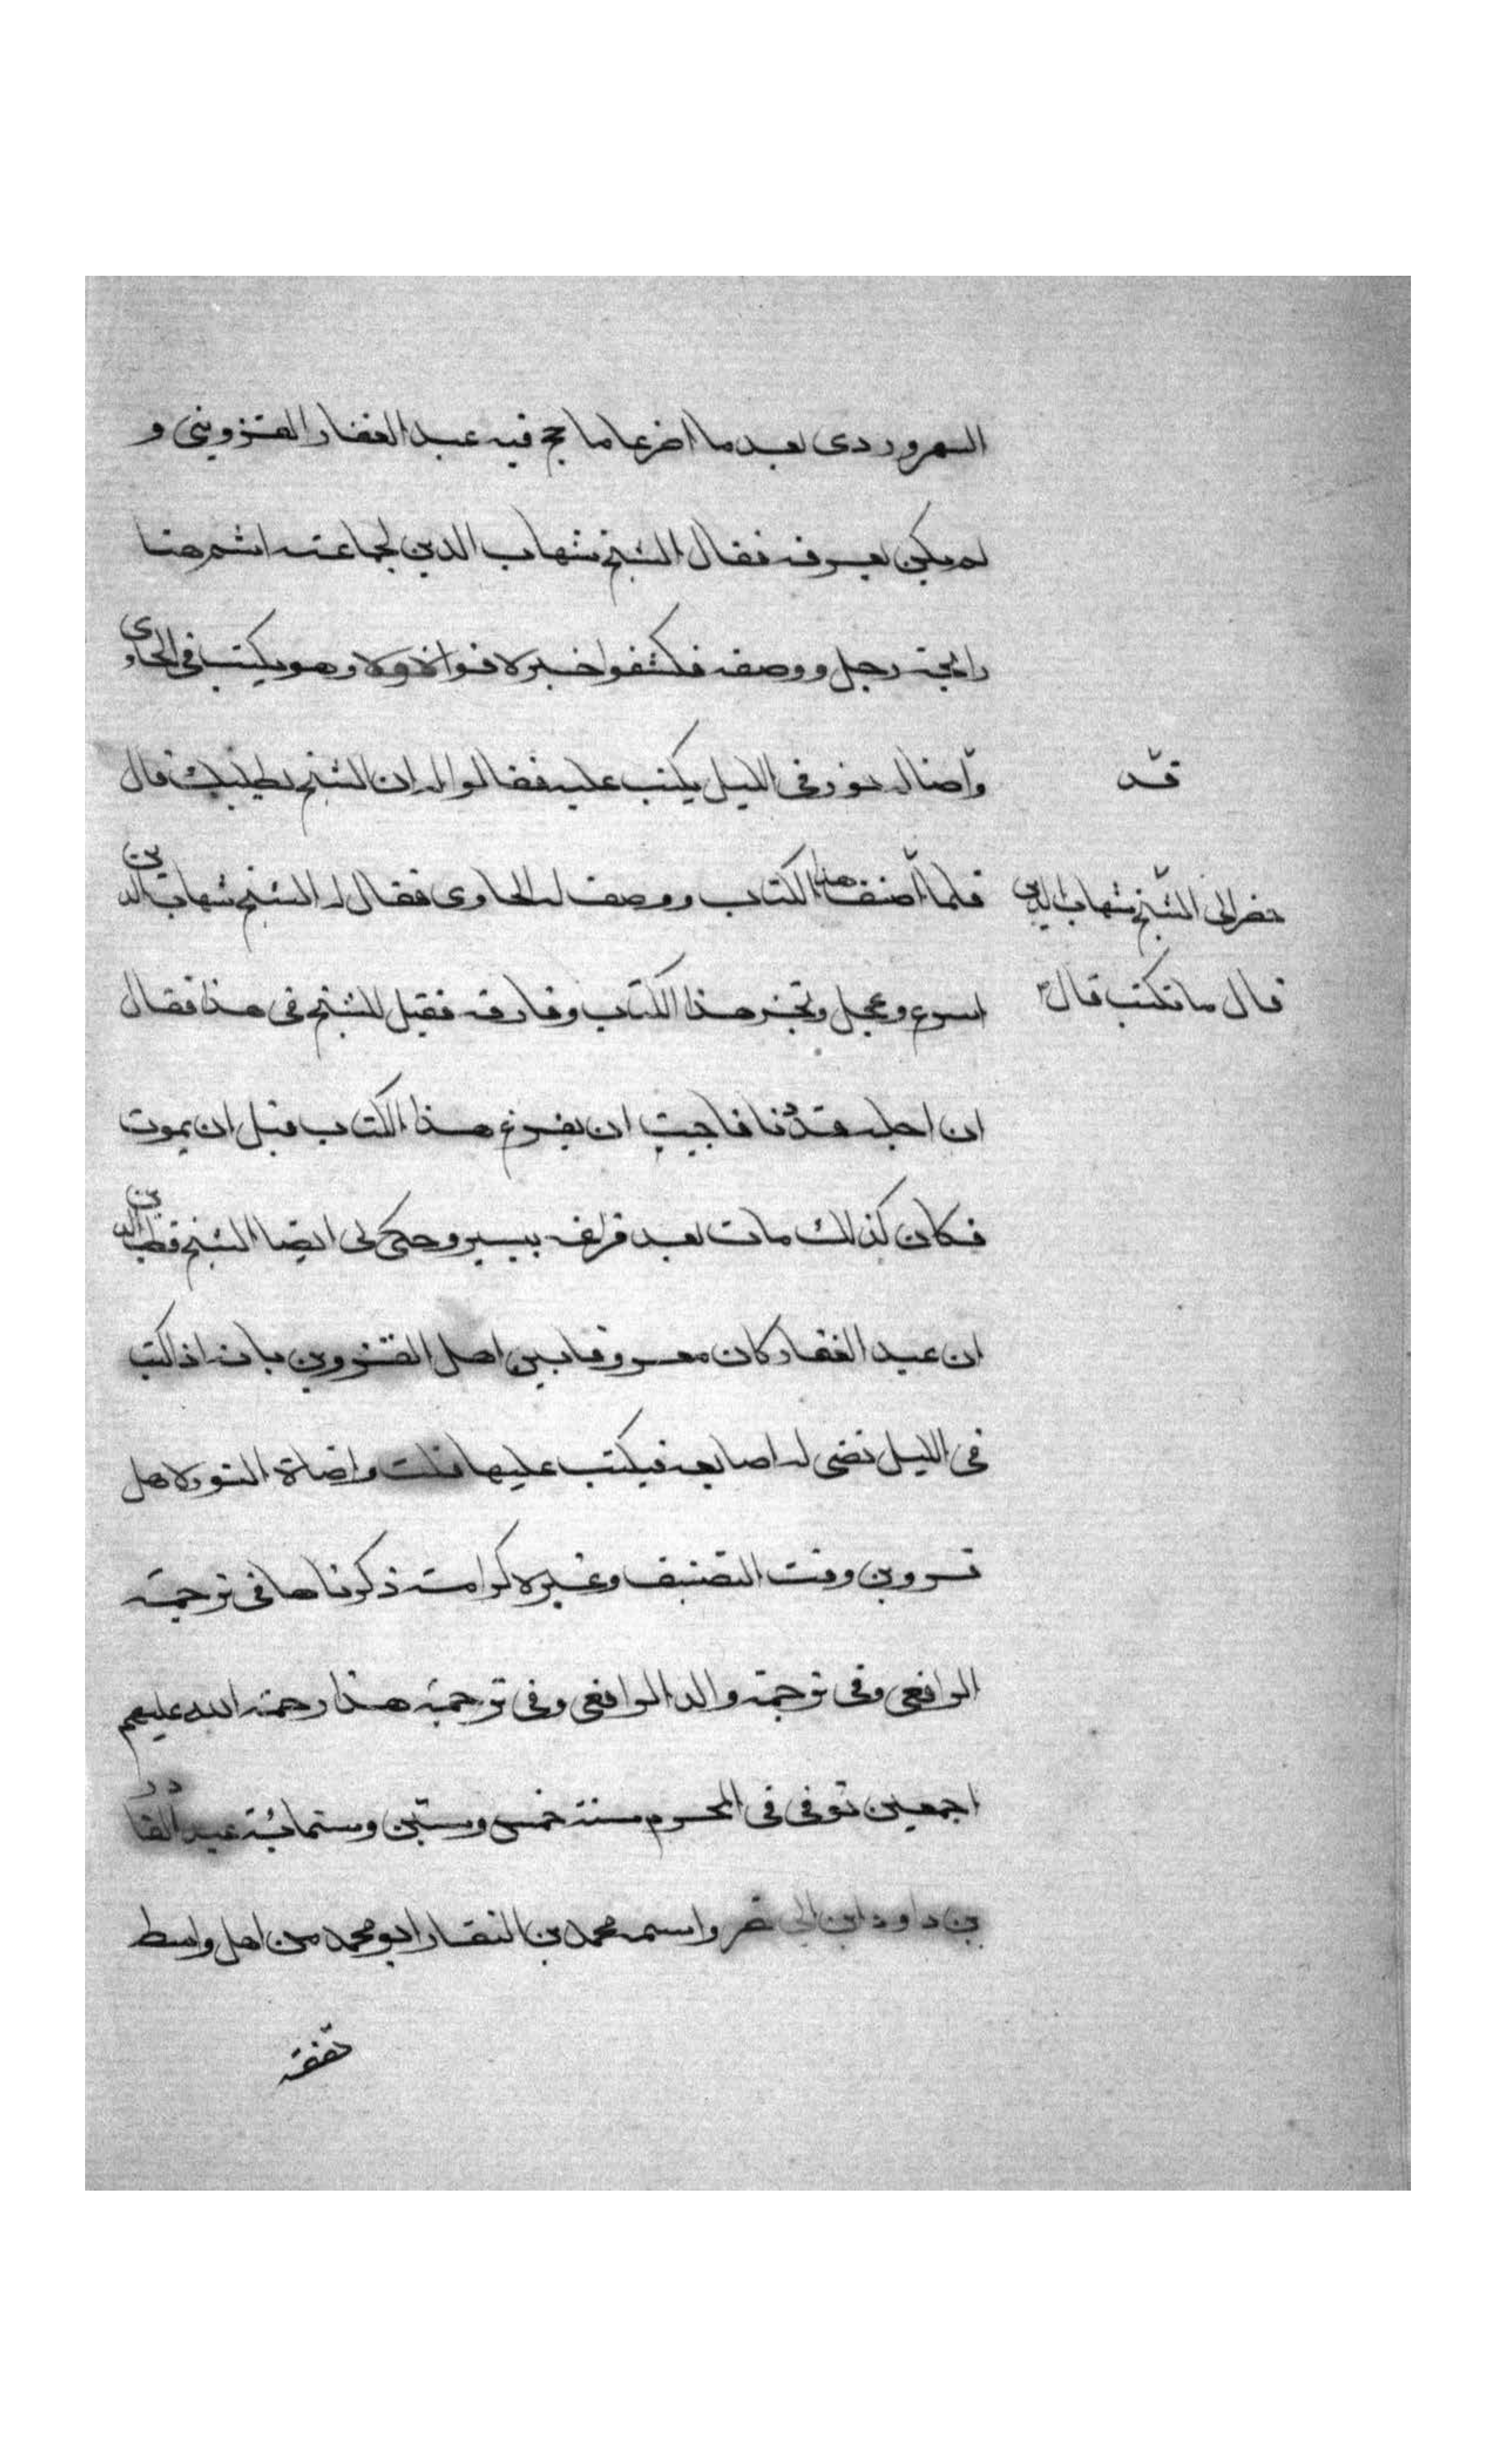 السهروردى بعد ما اضر عاما حج فيه عبد الغفار القزوينى و
لم يكن يعرفه فقال الشيخ شهاب الدين لجماعته اشم هنا
رايحة رجل ووصفه فكشفوا خبره فوافوه وهو يكتب فى الحاوى
قد
واضا له نور فى الليل يكتب عليه فقالوا له ان الشيخ يطلبك قال
حضر الى الشيخ شهاب الدين
فلما اصنف هذا الكتاب ووصف له الحاوى فقال له الشيخ شهاب الدين
قال ما تكتب قال
اسرع وعجل ونجز هذا الكتاب وفارقه فقيل للشيخ فى هذا فقال
ان اجله قد دنا فاجبت ان يفرغ هذا الكتاب قبل ان يموت
فكان كذلك مات بعد فراغه بيسير وحكى لى ايضا الشيخ قطب الدين
ان عبد الغفار كان معروفا بين اهل القزوين بانه اذا كتب
فى الليل تضى له اصابعه فيكتب عليها قلت واضاة النور لاهل
قزوين وقت التصنيف وغيره كرامة ذكرناها فى ترجمة
الرافعى وفى ترجمة والد الرافعى وفى ترجمة هذا رحمة الله عليهم
اجمعين توفى فى المحرم سنة خمس وستين وستمائة عبد القادر
بن داود ابن ابى نصر واسمه محمد بن النقار ابو محمد من اهل واسط
تفقه